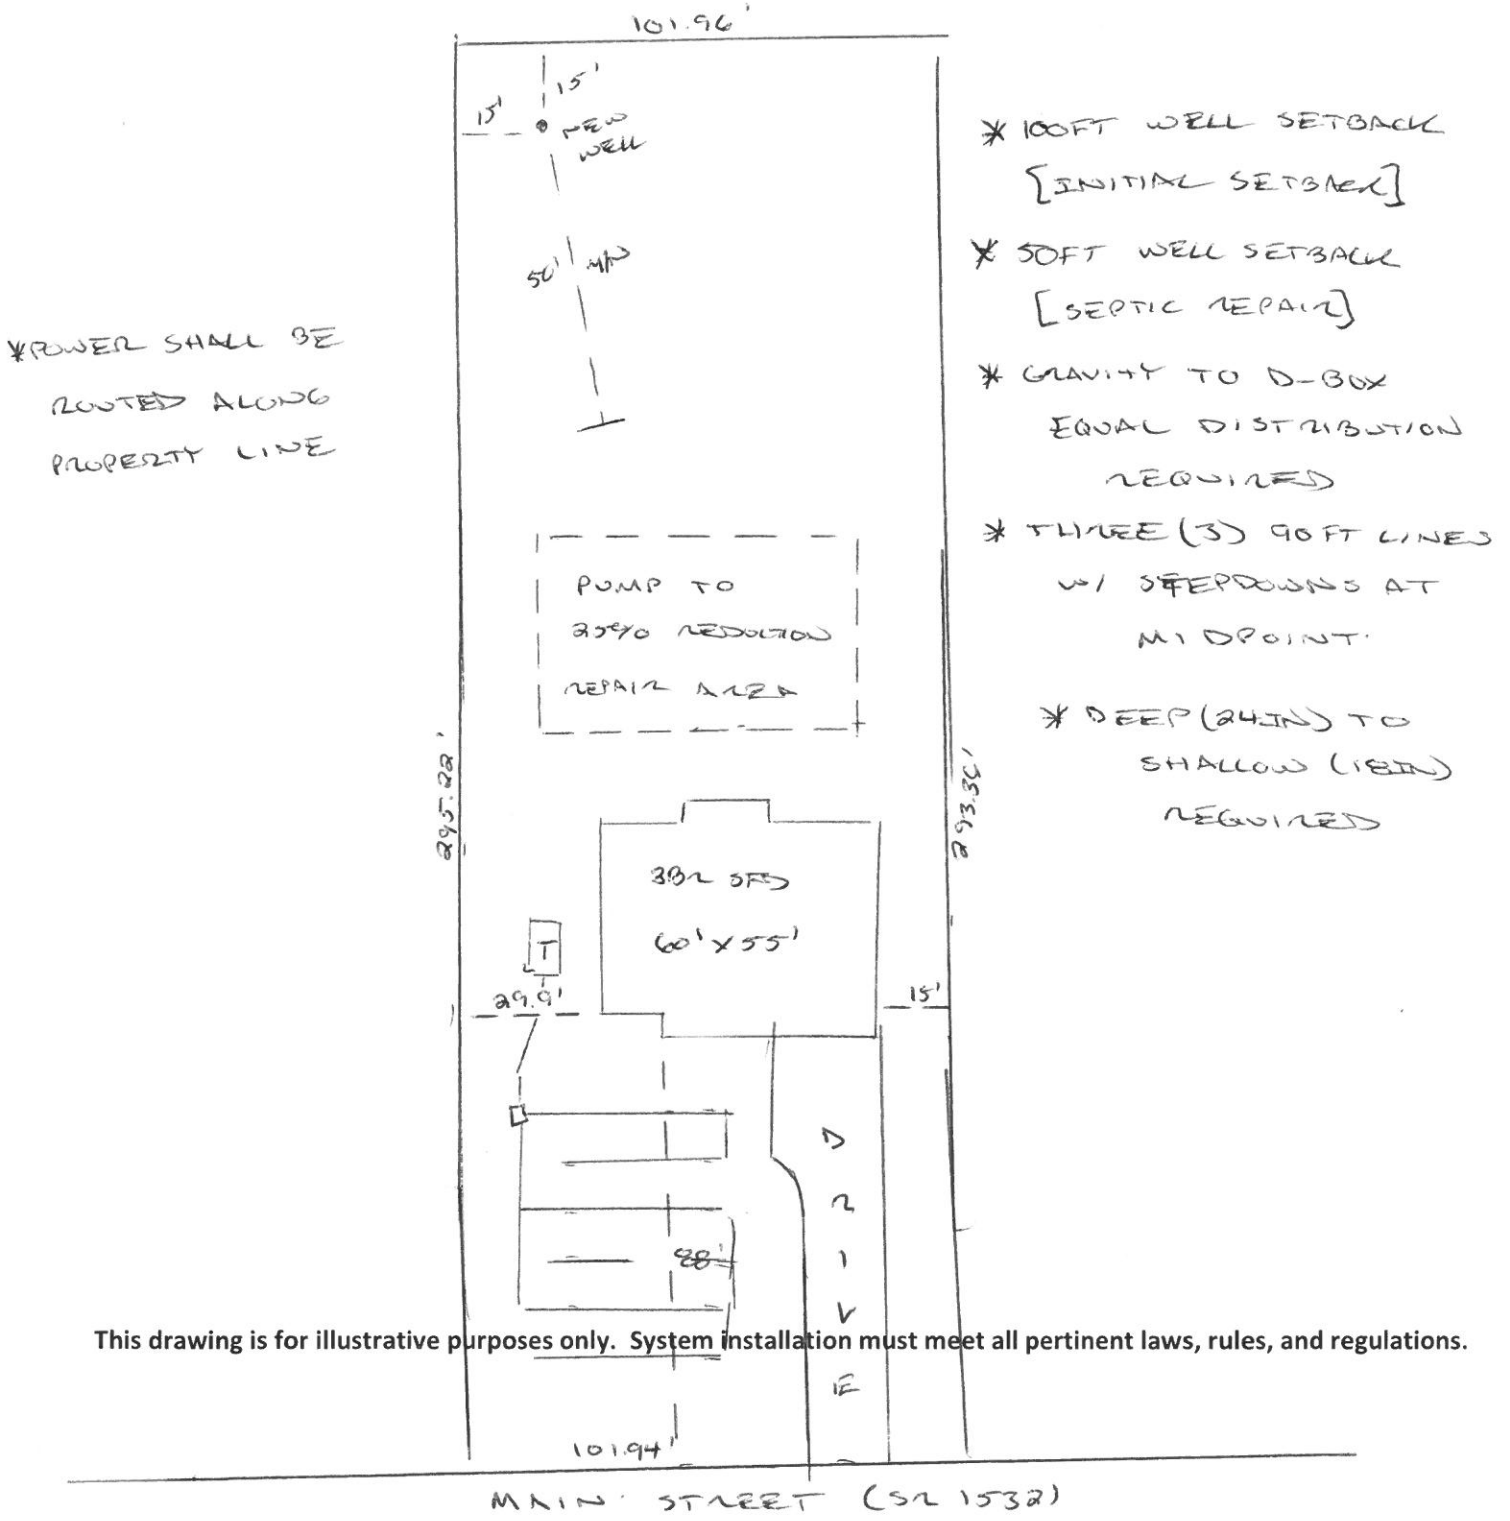 101.96'
15'
15'
NEW
WELL
50' MIN
*POWER SHALL BE
ROUTED ALONG
PROPERTY LINE
* 100FT WELL SETBACK
[INITIAL SETBACK]
* 50FT WELL SETBACK
[SEPTIC REPAIR]
* GRAVITY TO D-BOX
EQUAL DISTRIBUTION
REQUIRED
* THREE (3) 90FT LINES
W/ STEPDOWNS AT
MIDPOINT.
* DEEP (24IN) TO
SHALLOW (18IN)
REQUIRED
PUMP TO
25% REDUCTION
REPAIR AREA
295.22'
293.35'
3BR SFD
60' X 55'
T
29.9'
15'
DRIVE
88'
This drawing is for illustrative purposes only. System installation must meet all pertinent laws, rules, and regulations.
101.94'
MAIN STREET (SR 1532)